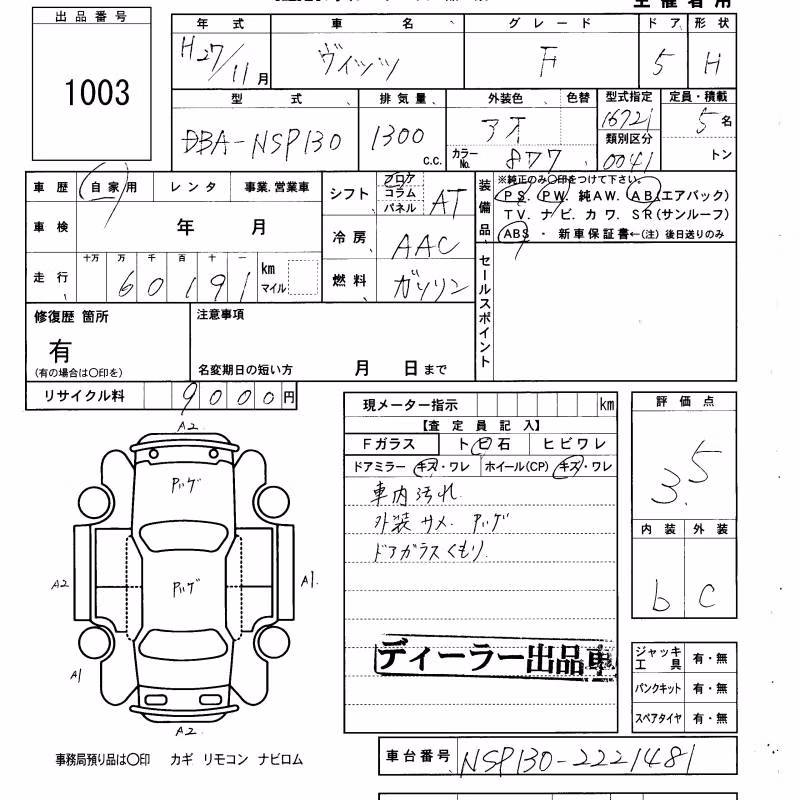 出品番号
1003
年式 車名 グレード ドア 形状
H27/11月 ヴィッツ F 5 H
型式 排気量 外装色 色替 型式指定 定員・積載
DBA-NSP130 1300 c.c. アオ 16721 5名
カラーNo. 877 類別区分 0041 トン
車歴 自家用 レンタ 事業.営業車
車検 年 月
走行 十万 万 千 百 十 一
60191 km マイル
シフト フロア コラム パネル AT
冷房 AAC
燃料 ガソリン
装備品 ※純正のみ〇印をつけて下さい。
PS. PW. 純AW. AB(エアバック)
TV. ナビ. カワ. SR(サンルーフ)
ABS ・ 新車保証書←(注) 後日送りのみ
セールスポイント
修復歴 箇所 注意事項
有
(有の場合は〇印を) 名変期日の短い方 月 日まで
リサイクル料 9000円
現メーター指示 km
【査定員記入】
Fガラス トビ石 ヒビワレ
ドアミラー キズ・ワレ ホイール(CP) キズ・ワレ
車内汚れ
外装サメ. ハゲ
ドアガラスくもり
ディーラー出品車
評価点
3.5
内装 外装
b C
A2
ハゲ
A2 ハゲ A1.
A1
A2
ジャッキ工具 有・無
パンクキット 有・無
スペアタイヤ 有・無
事務局預り品は〇印 カギ リモコン ナビロム
車台番号 NSP130-2221481